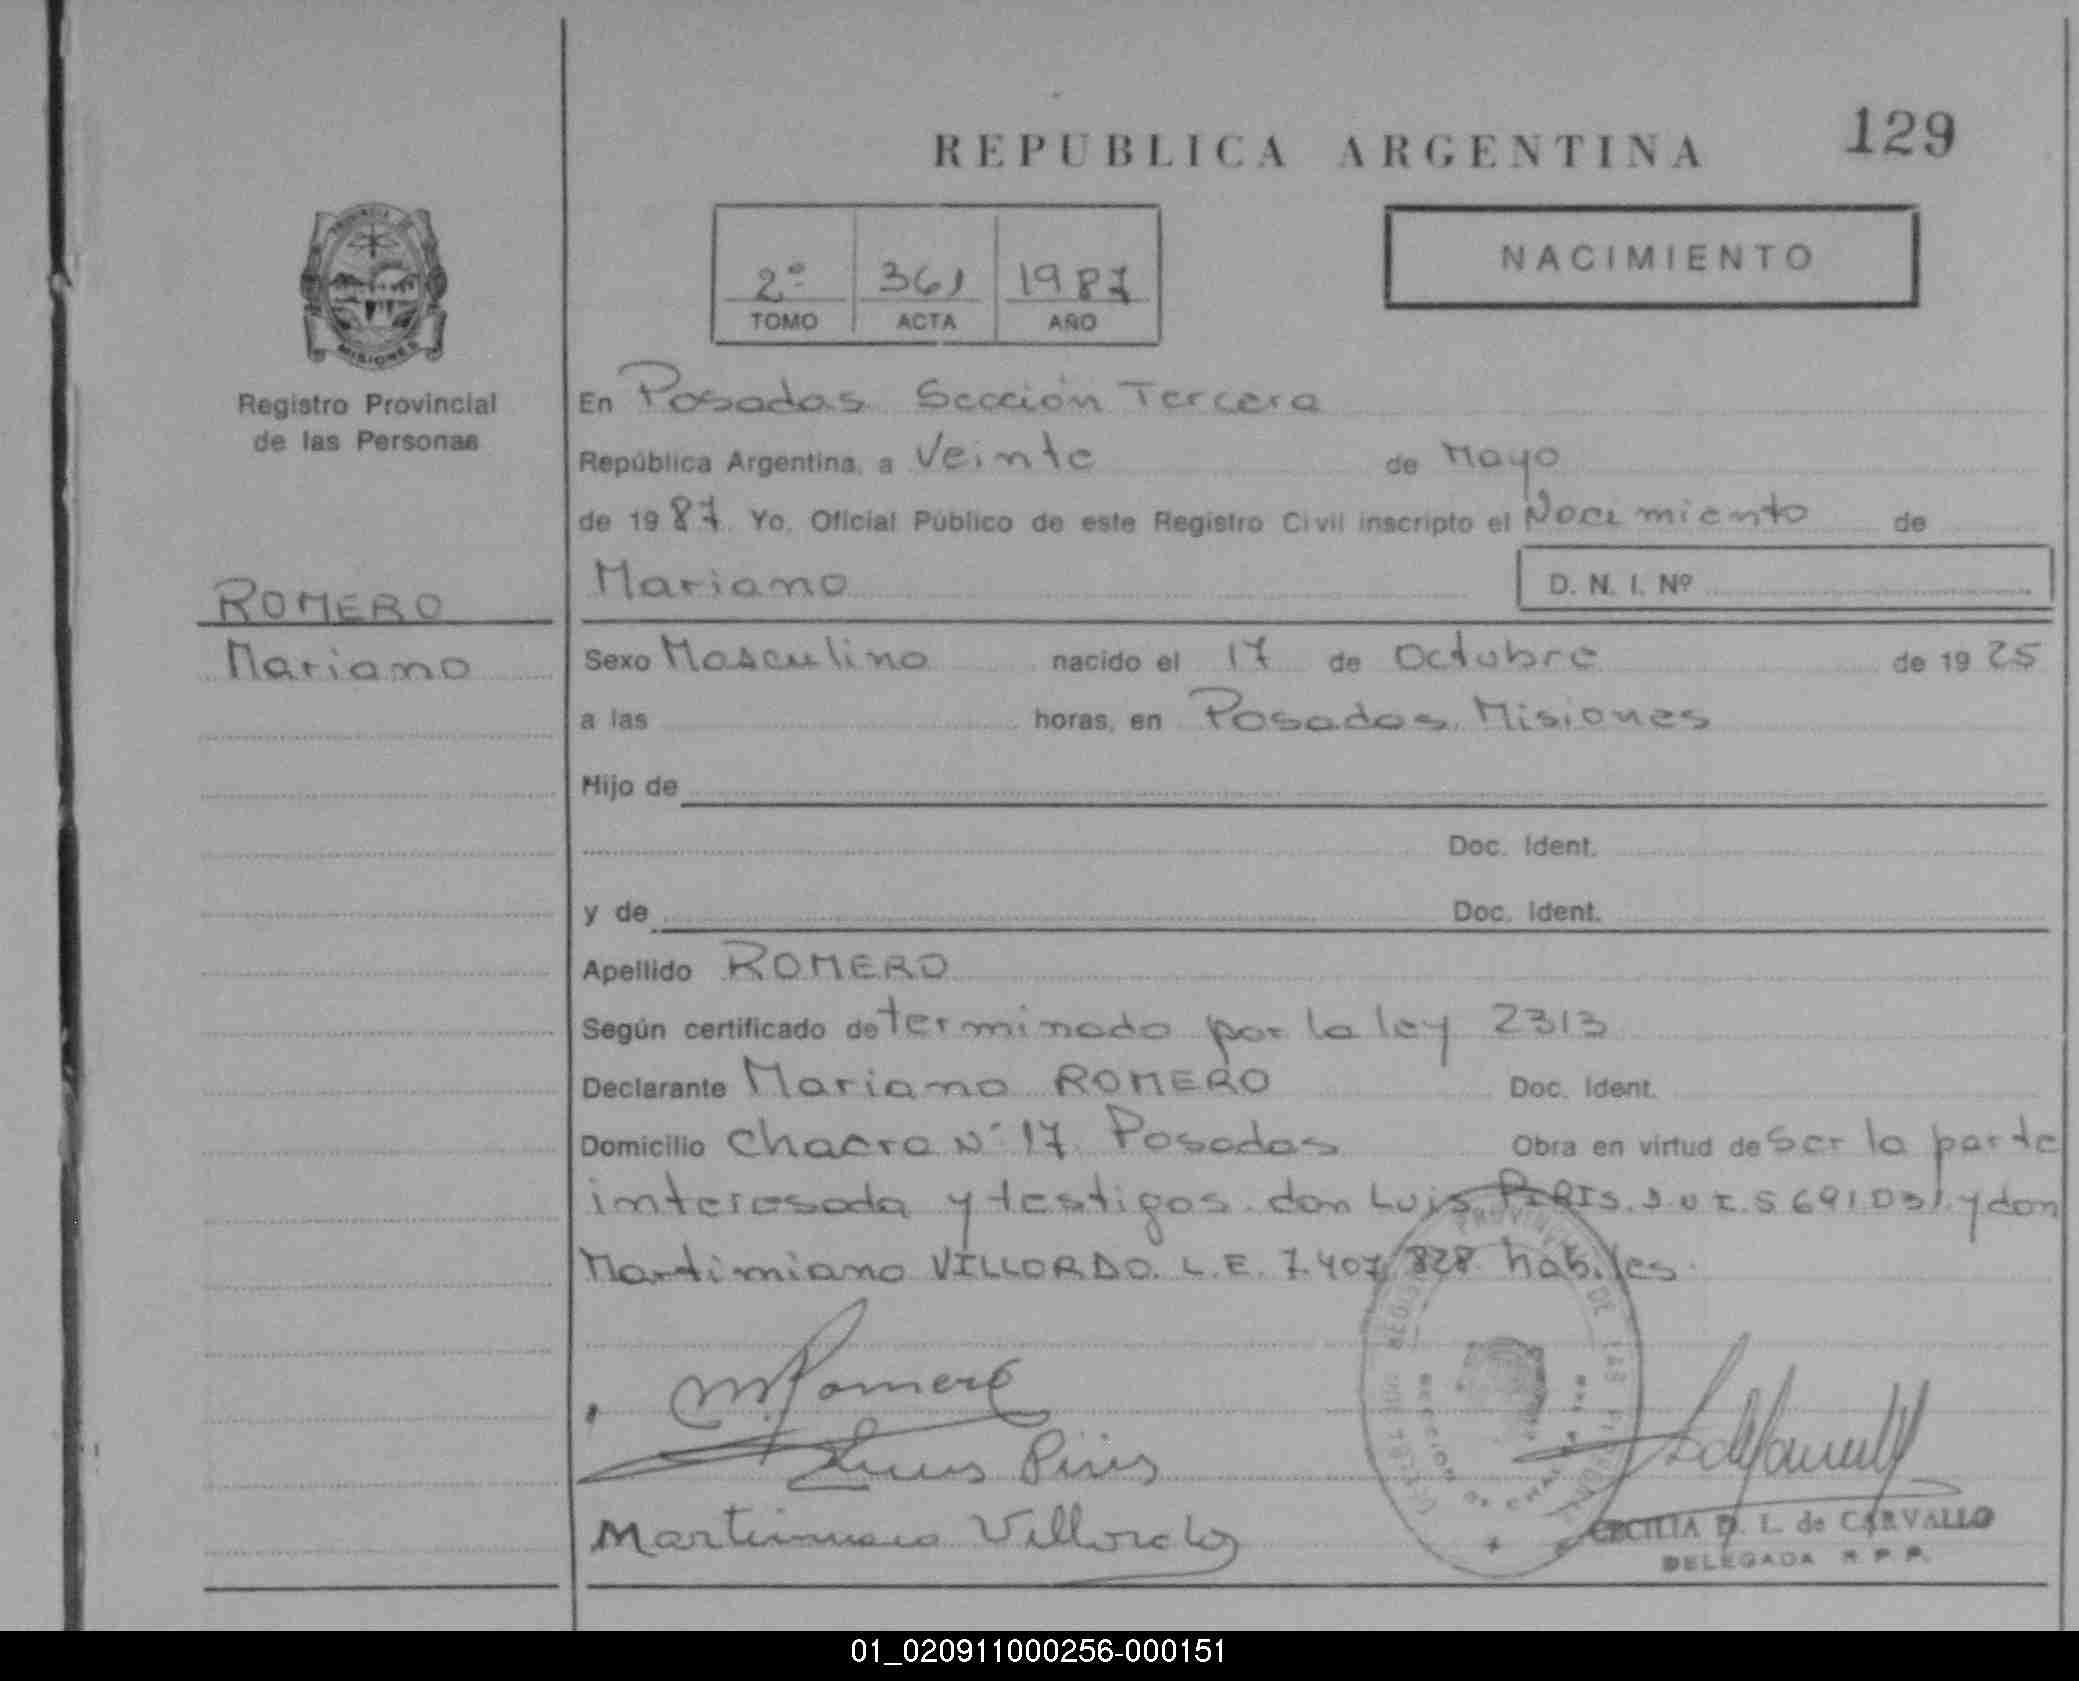 REPUBLICA ARGENTINA 129
2º 361 1987
TOMO ACTA AÑO
NACIMIENTO
PROVINCIA
MISIONES
Registro Provincial
de las Personas
ROMERO
Mariano
En Posadas Sección Tercera
República Argentina, a Veinte de Mayo
de 1987. Yo, Oficial Público de este Registro Civil inscripto el Nacimiento de
Mariano D. N. I. Nº
Sexo Masculino nacido el 17 de Octubre de 1925
a las horas, en Posadas, Misiones
Hijo de
Doc. Ident.
y de Doc. Ident.
Apellido ROMERO
Según certificado determinado por la ley 2313
Declarante Mariano ROMERO Doc. Ident.
Domicilio Chacra Nº 17. Posadas Obra en virtud de Ser la parte
interesada y testigos. don Luis PIRIS. y don
Martimiano VILLORDO. L.E. 7.407.828 habiles
M Romero
Luis Piris
Martimiano Villordo
CECILIA D. L. de CARVALLO
DELEGADA R. P. P.
01_020911000256-000151